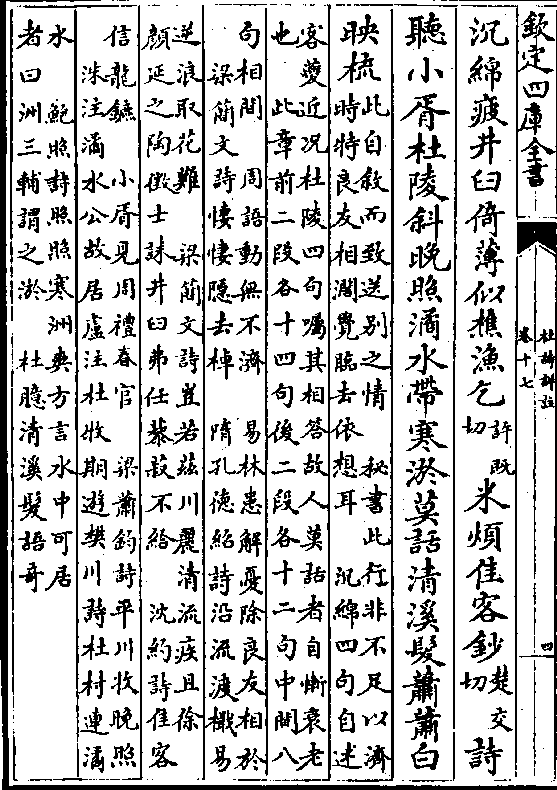 欽定四庫全書
杜詩詳註
卷十七
四
沉綿疲井臼倚薄似樵漁乞許既切米煩佳客鈔楚交切詩
聽小胥杜陵斜晚照潏水帶寒淤莫話清溪髮蕭蕭白
映梳此自敘而致送别之情 秘書此行非不足以濟
時特良友相濶覺臨去依想耳 沉綿四句自述
客夔近况杜陵四句囑其相答故人莫話者自慚衰老
也 此章前二段各十四句後二段各十二句中間八
句相間 周語動無不濟 易林患解憂除良友相於
梁簡文詩悽悽隱去棹 隋孔德紹詩沿流渡檝易
逆浪取花難 梁簡文詩豈若兹川麗清流疾且徐
顔延之陶徵士誄井臼弗任藜菽不給 沈約詩佳客
信龍鑣 小胥見周禮春官 梁蕭鈞詩平川收晚照
洙注潏水公故居盧注杜牧期遊樊川詩杜村連潏
水 鮑照詩照照寒洲爽方言水中可居
者曰洲三輔謂之淤 杜臆清溪髮語奇